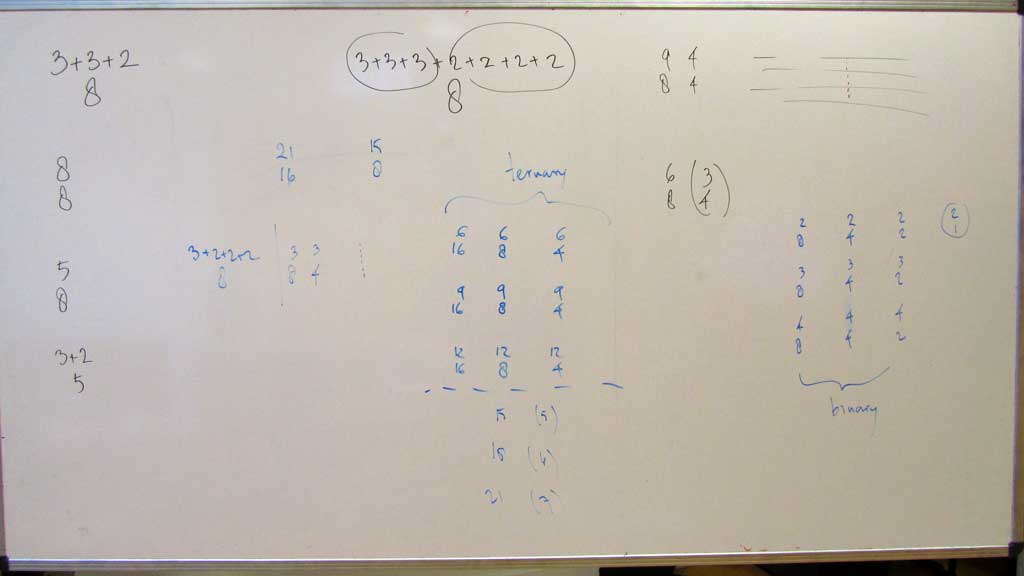 3+3+2
8
3+3+3+2+2+2+2
8
9 4
8 4
8
8
21 15
16 8
ternary
6 (3
8 4)
2 2 2 2
8 4 2 1
3+2+2+2 3 3
8 8 4
6 6 6
16 8 4
5
8
3 3 3
8 4 2
9 9 9
16 8 4
4 4 4
8 4 2
3+2
5
12 12 12
16 8 4
binary
15 (5)
18 (6)
21 (7)